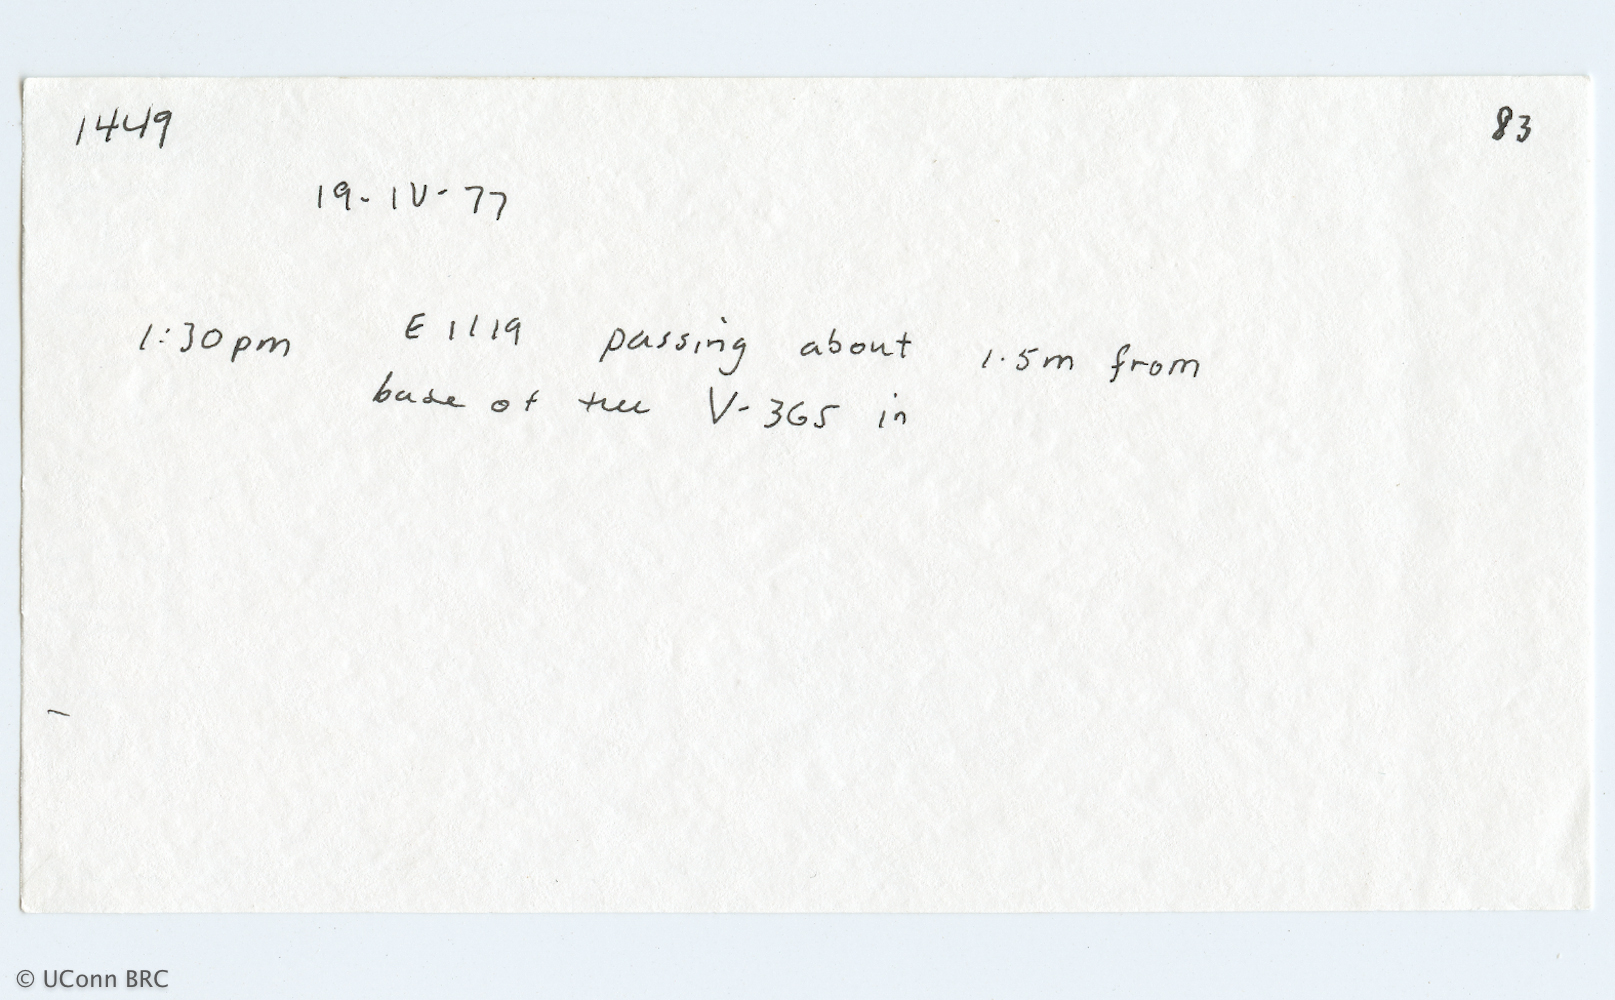 1449
83
19-IV-77
1:30pm E 1119 passing about 1.5m from
base of tree V-365 in
© UConn BRC